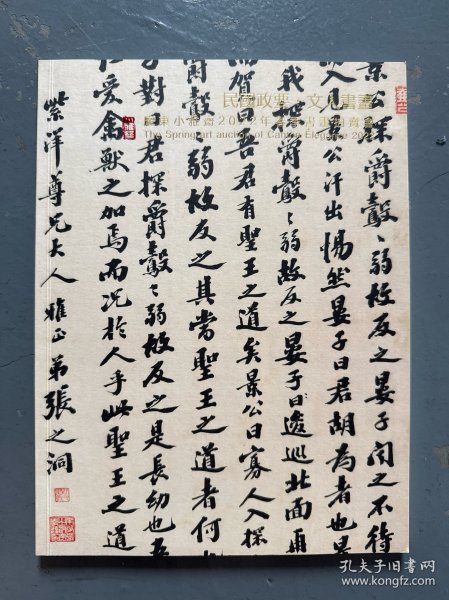 民國政要·文人書畫
廣東小雅齋2022年春季書畫拍賣會
The Spring art auction of Canton Elegance 2022
景公探爵鷇〻弱故反之晏子聞之不待
入見景公汗出惕然晏子曰君胡為者也景
我探爵鷇〻弱故反之晏子曰逡巡北面再
而賀曰吾君有聖王之道矣景公曰寡人入探
爵鷇〻弱故反之其當聖王之道者何也
子對君探爵鷇〻弱故反之是長幼也吾
仁愛禽獸之加焉而況於人乎此聖王之道
紫洋尊兄大人雅正弟張之洞
孔夫子旧书网
www.kongfz.com